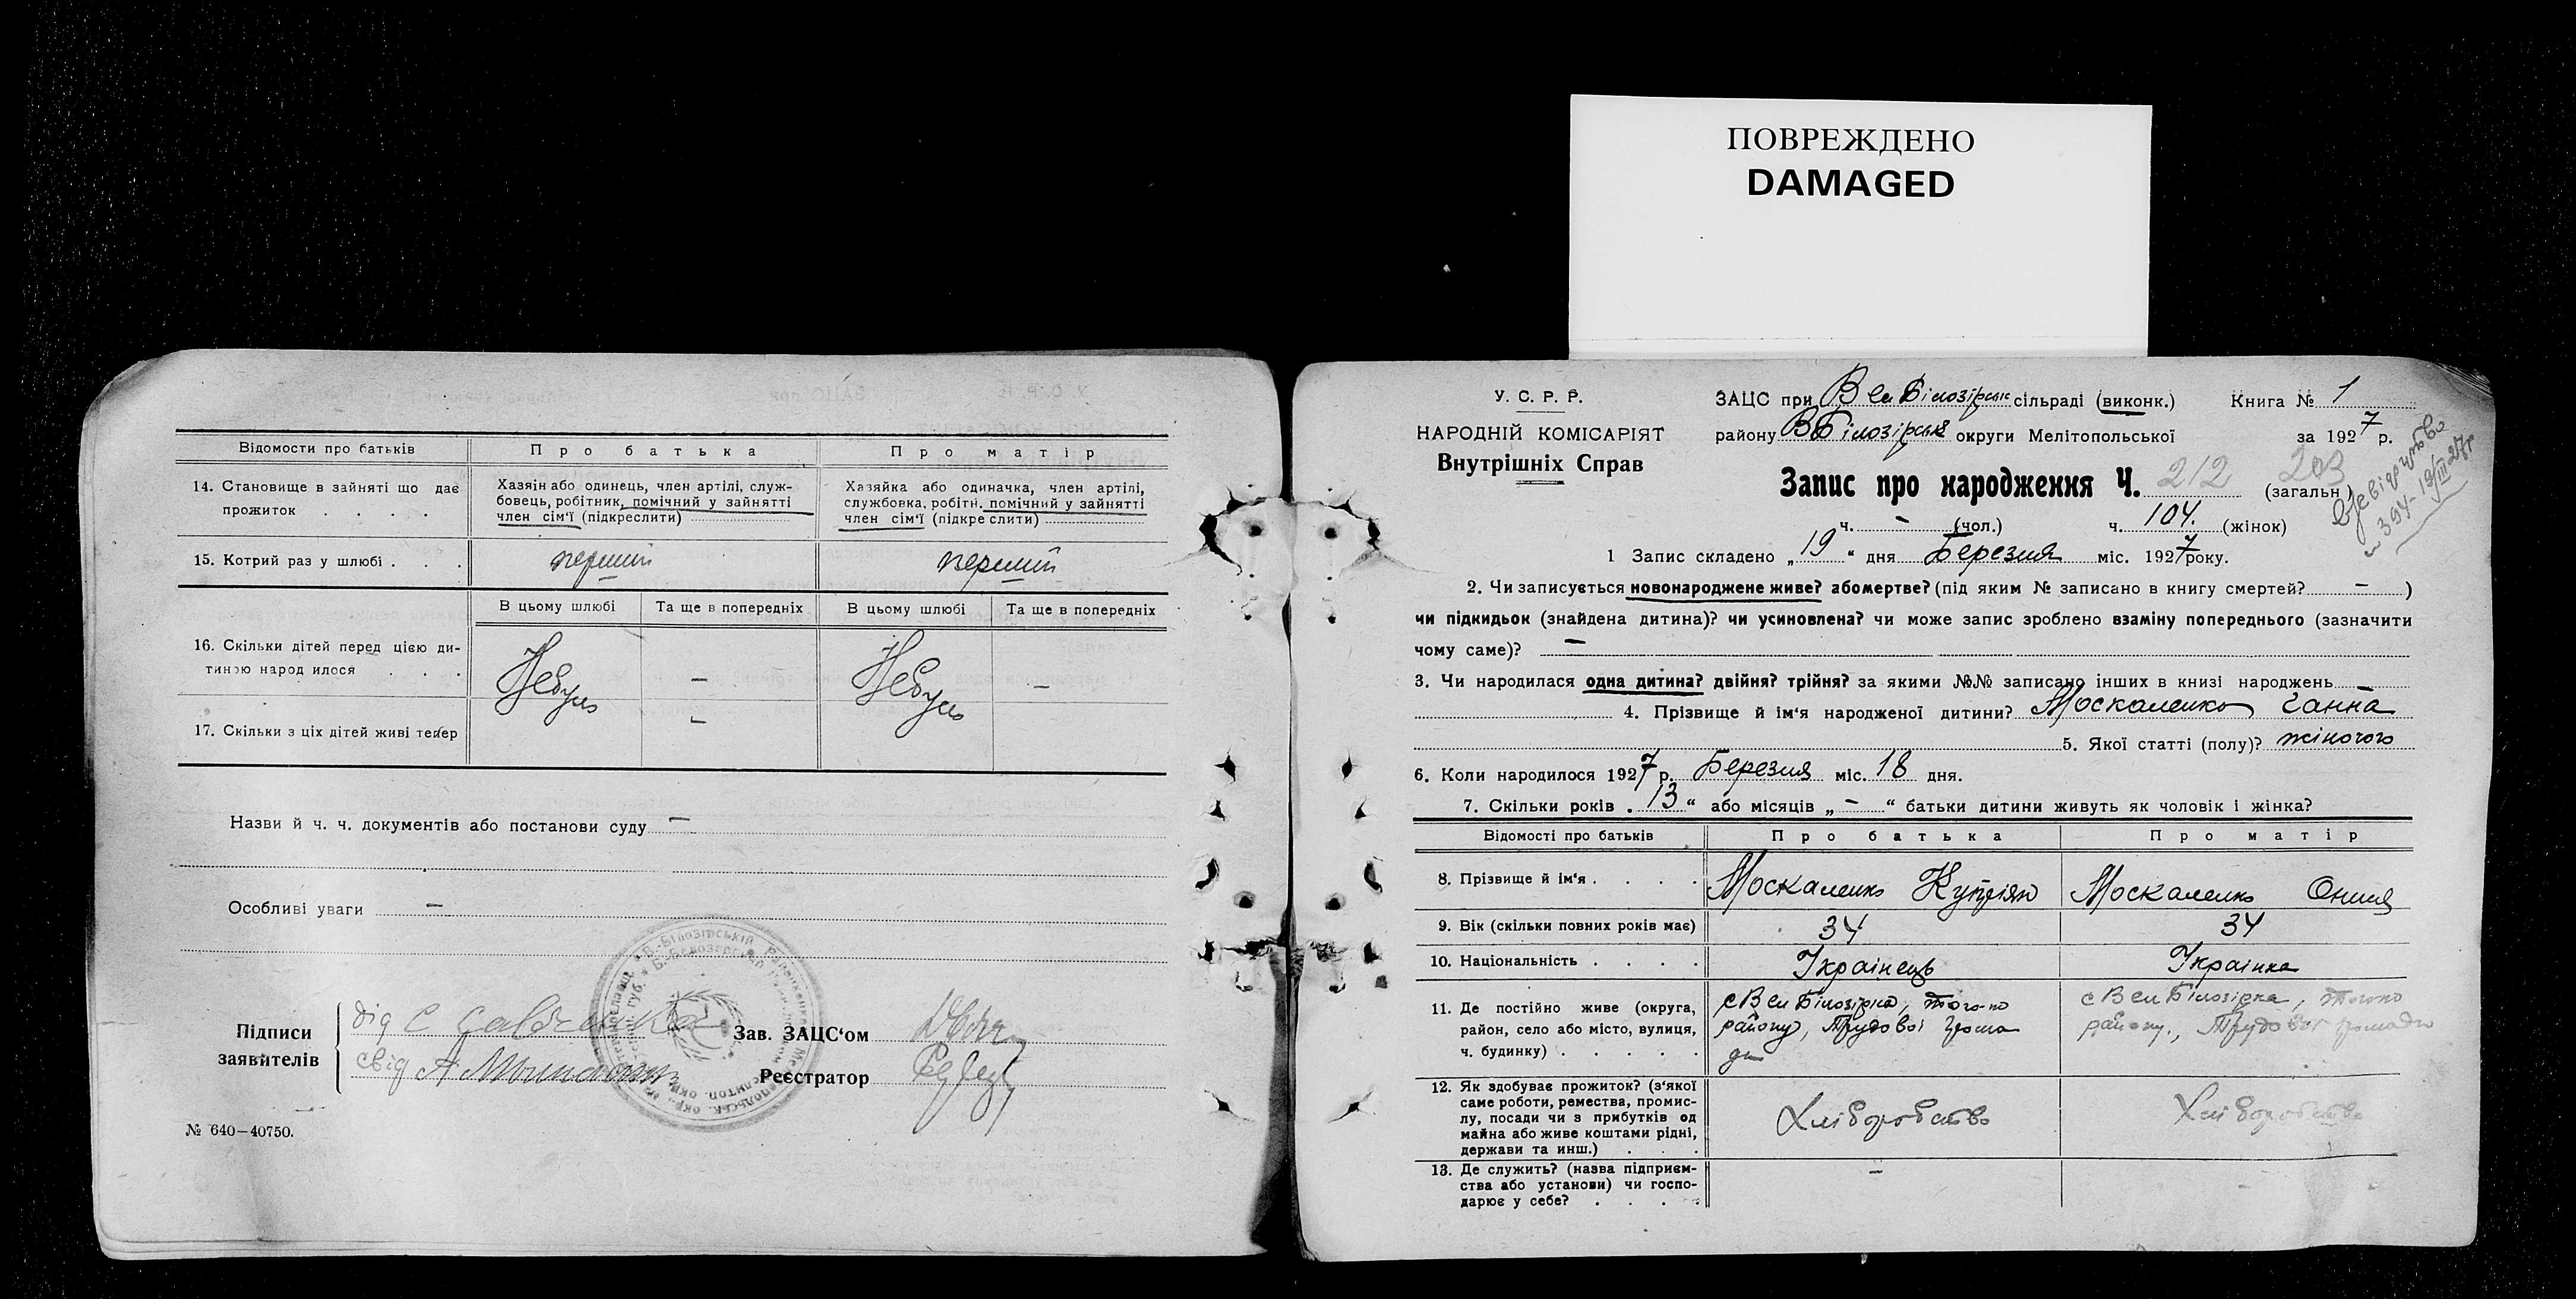 ПОВРЕЖДЕНО
DAMAGED
Відомости про батьків
Про батька
Про матір
14. Становище в зайняті що дає прожиток . . . .
Хазяін або одинець, член артілі, служ-
бовець, робітник, помічний у зайнятті
член сім'ї (підкреслити)
Хазяйка або одиначка, член артілі,
службовка, робітн. помічний у зайнятті
член сім'ї (підкреслити)
15. Котрий раз у шлюбі . . .
перший
перший
В цьому шлюбі
Та ще в попередніх
В цьому шлюбі
Та ще в попередніх
16. Скільки дітей перед цією ди-
тиною народилося . . .
Небуло
–
Небуло
–
17. Скільки з ціх дітей живі тепер
–
Назви й ч. ч. документів або постанови суду –
Особливі уваги –
Підписи
заявителів
дід С
свід А
Зав. ЗАЦС'ом
Реєстратор
№ 640—40750.
У. С. Р. Р.
НАРОДНІЙ КОМІСАРІЯТ
Внутрішніх Справ
ЗАЦС при Вел Білозірськ сільраді (виконк.) Книга № 1
району ВБілозірське округи Мелітопольської за 1927 р.
Запис про народження Ч. 212 203 (загальн)
ч. – (чол.) ч. 104. (жінок)
394 – 19/III 27 р
1 Запис складено „19“ дня Березня міс. 1927 року.
2. Чи записується новонароджене живе? або мертве? (під яким № записано в книгу смертей? – )
чи підкидьок (знайдена дитина)? чи усиновлена? чи може запис зроблено взаміну попереднього (зазначити
чому саме)? –
3. Чи народилася одна дитина? двійня? трійня? за якими №№ записано інших в книзі народжень –
4. Прізвище й ім'я народженої дитини? Москаленко Ганна
5. Якої статті (полу)? жіночого
6. Коли народилося 1927 р. Березня міс. 18 дня.
7. Скільки років „13“ або місяців „–“ батьки дитини живуть як чоловік і жінка?
Відомості про батьків
Про батька
Про матір
8. Прізвище й ім'я . . . .
Москаленко Купріян
Москаленко
9. Вік (скільки повних років має)
34
34
10. Національність . . . .
Украінець
Украінка
11. Де постійно живе (округа,
район, село або місто, вулиця,
ч. будинку) . . . . .
с Вел Білозірка, того-по
району, Трудовоі грома
ди
с Вел Білозірка, того по
району., Трудовоі громади
12. Як здобуває прожиток? (з'якої
саме роботи, ремества, промис-
лу, посади чи з прибутків од
майна або живе коштами рідні,
держави та инш.) . . .
Хліборобство
Хліборобство
13. Де служить? (назва підприєм-
ства або установи) чи госпо-
дарює у себе? . . . .
–
-